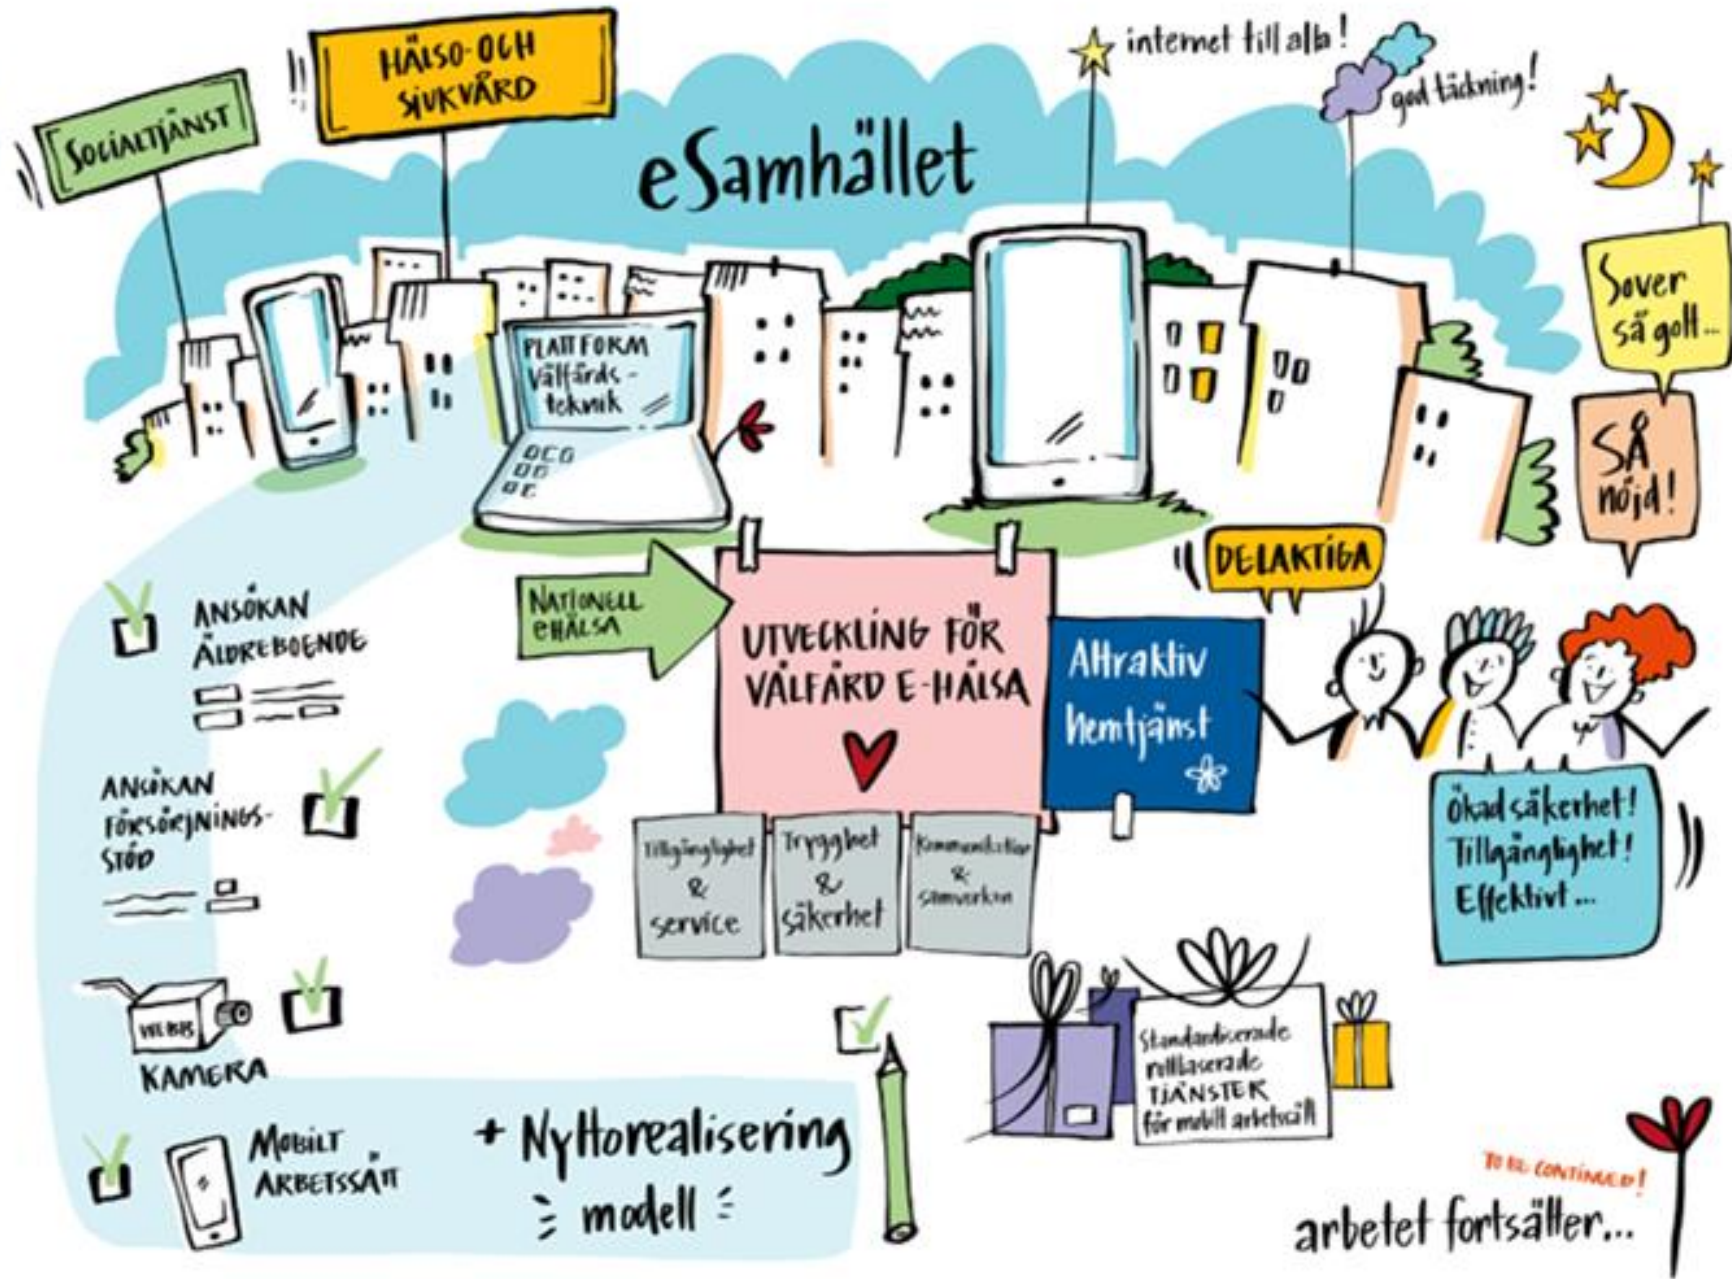 SOCIALTJÄNST
HÄLSO- OCH
SJUKVÅRD
eSamhället
internet till alla!
god täckning!
Sover
så gott...
SÅ
nöjd!
PLATTFORM
Välfärds-
teknik
NATIONELL
eHÄLSA
UTVECKLING FÖR
VÄLFÄRD E-HÄLSA
Attraktiv
hemtjänst
DELAKTIGA
Ökad säkerhet!
Tillgänglighet!
Effektivt...
Tillgänglighet
&
service
Trygghet
&
säkerhet
Kommunikation
&
samverkan
ANSÖKAN
ÄLDREBOENDE
ANSÖKAN
FÖRSÖRJNINGS-
STÖD
WEBB
KAMERA
MOBILT
ARBETSSÄTT
+ Nyttorealisering
modell
Standardiserade
rollbaserade
TJÄNSTER
för mobilt arbetssätt
TO BE CONTINUED!
arbetet fortsätter...